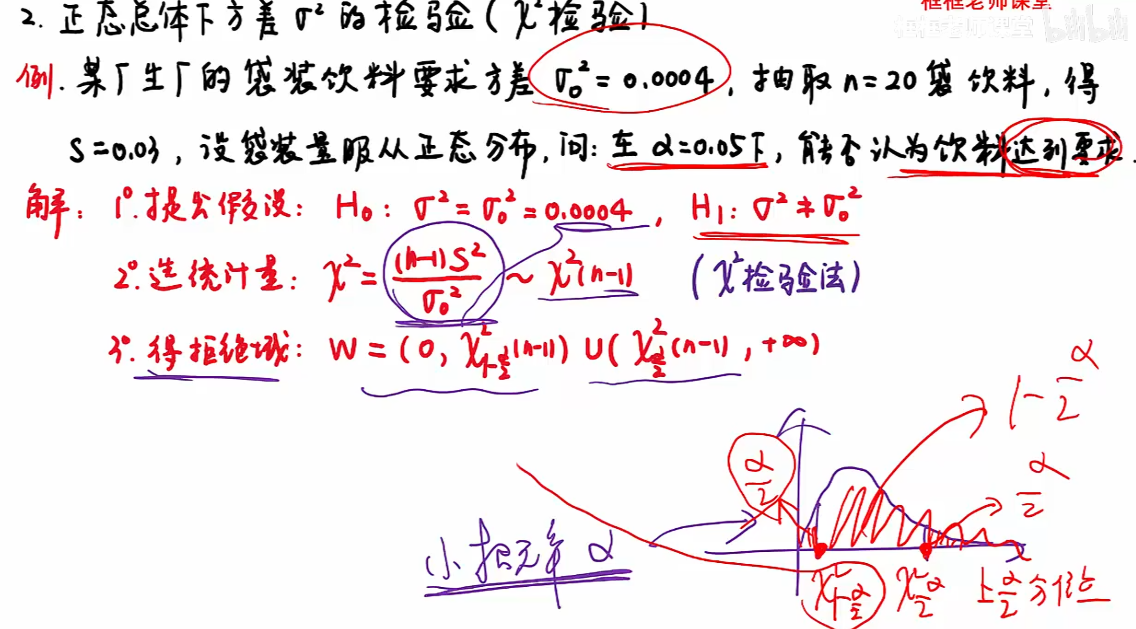 框框老师课堂
2. 正态总体下方差 σ² 的检验 (χ²检验)
例. 某厂生厂的袋装饮料要求方差 σ₀² = 0.0004, 抽取 n=20 袋饮料, 得
S=0.03, 设袋装量服从正态分布, 问: 在 α=0.05下, 能否认为饮料达到要求.
解: 1° 提出假设: H₀: σ² = σ₀² = 0.0004, H₁: σ² ≠ σ₀²
2° 选统计量: χ² = (n-1)S²/σ₀² ~ χ²(n-1) (χ²检验法)
3° 得拒绝域: W = (0, χ²_{1-α/2}(n-1)) ∪ (χ²_{α/2}(n-1), +∞)
1-α/2
α/2
α/2
小概率 α
χ²_{1-α/2} χ²_{α/2} 上α/2分位点